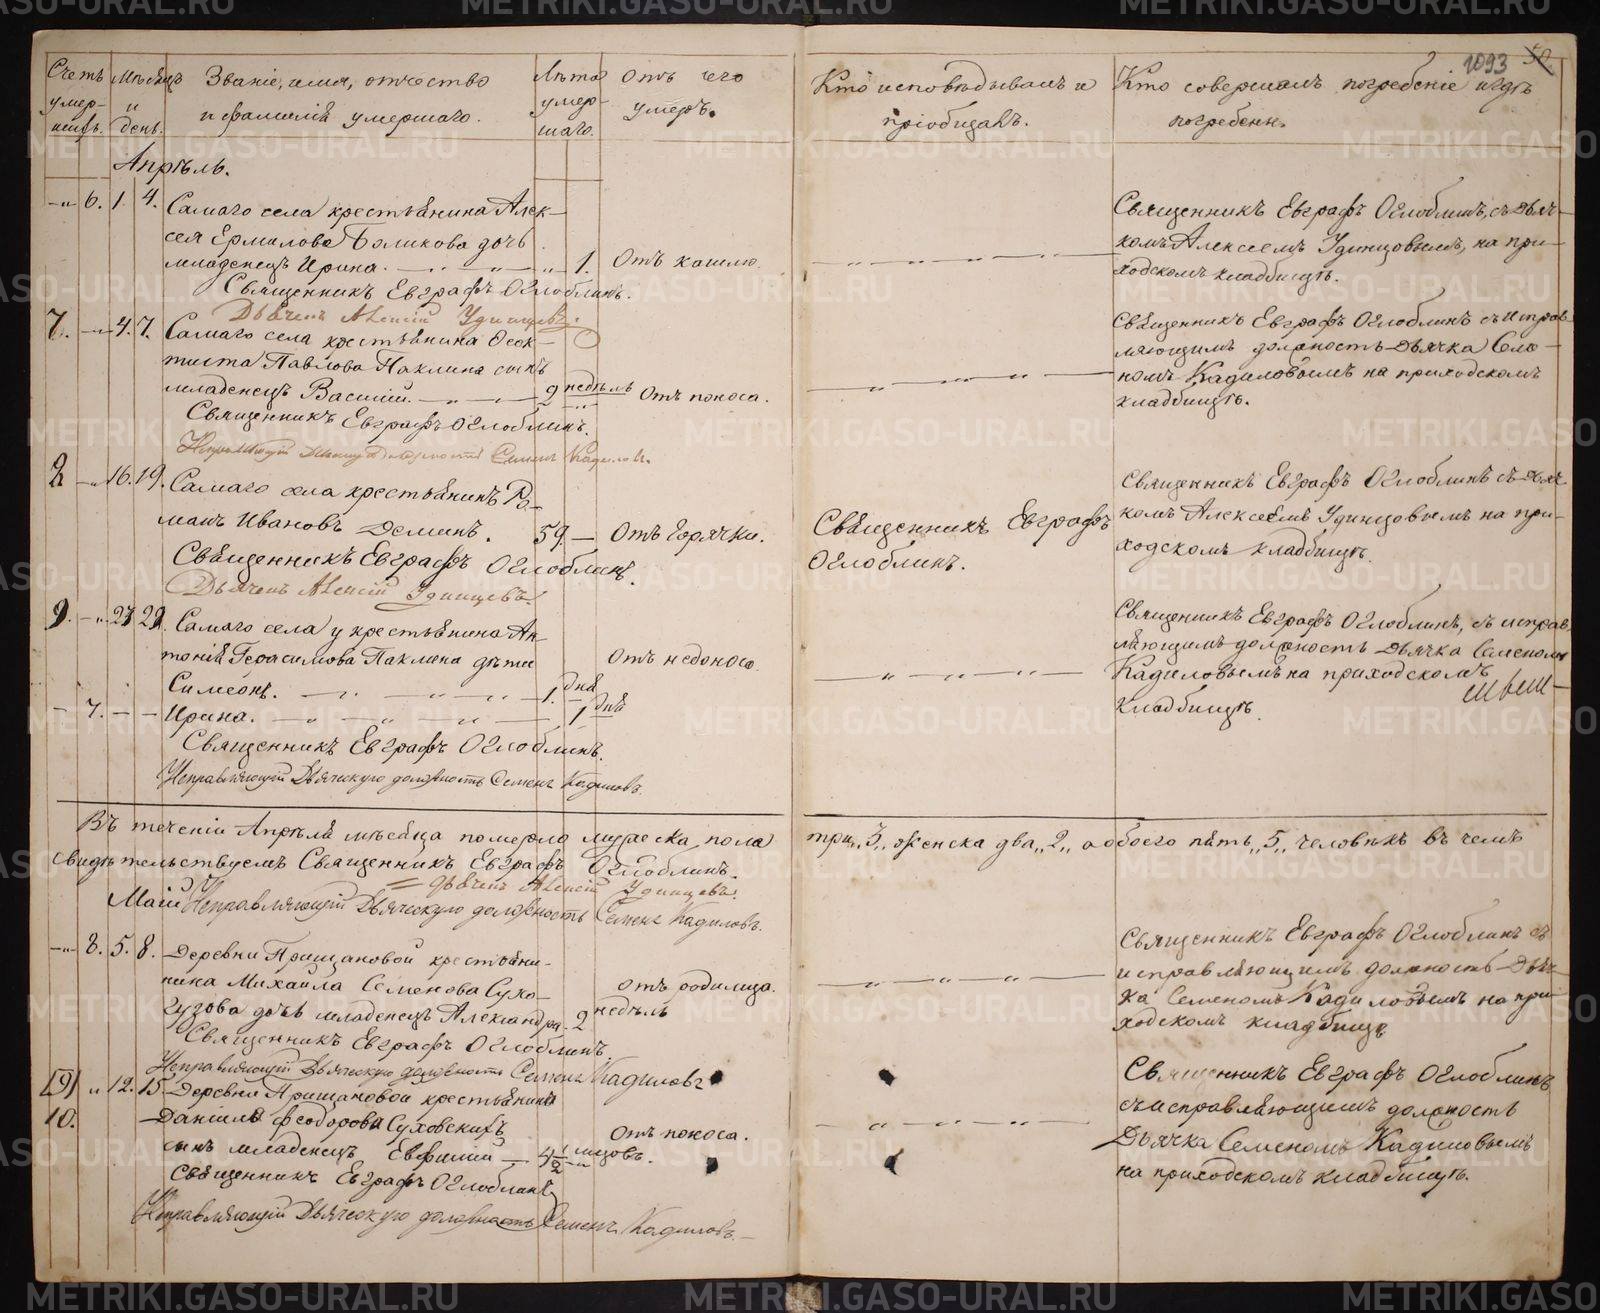 1093 50
Счетъ умер-шихъ.
Мѣсяцъ и день.
Званіе, имя, отчество и фамилія умершаго.
Лѣта умер-шаго.
Отъ чего умеръ.
Кто исповѣдывалъ и пріобщалъ.
Кто совершалъ погребеніе и гдѣ погребены.
Апрѣль.
-"- 6. 1. 4. Самаго села крестьянина Алек-
сея Ермилова Боликова дочь
младенецъ Ирина. — " — " — " 1. Отъ кашлю.
Священникъ Евграфъ Оглоблинъ.
Дьячекъ Алексій Удинцевъ.
Священникъ Евграфъ Оглоблинъ, съ дьяч-
комъ Алексеемъ Удинцовымъ, на при-
ходскомъ кладбищѣ.
7. -"- 4. 7. Самаго села крестьянина Ѳеок-
тиста Павлова Паклина сынъ
младенецъ Василій. — " — 2 недѣль Отъ поноса.
Священникъ Евграфъ Оглоблинъ.
Исправляющій Дьячка должность Семенъ Кадиловъ.
Священникъ Евграфъ Оглоблинъ съ исправ-
ляющимъ должность Дьячка Семе-
номъ Кадиловымъ на приходскомъ
кладбищѣ.
8 -"- 16. 19. Самаго села крестьянинъ Ро-
манъ Ивановъ Деминъ. 59 — Отъ горячки.
Священникъ Евграфъ Оглоблинъ.
Дьячекъ Алексій Удинцевъ.
Священникъ Евграфъ
Оглоблинъ.
Священникъ Евграфъ Оглоблинъ съ дьяч-
комъ Алексеемъ Удинцовымъ на при-
ходскомъ кладбищѣ
9. -"- 27 29. Самаго села у крестьянина Ан-
тонія Герасимова Паклина дѣти
Симеонъ. — " — " — " — 1. дня Отъ недоноса.
- 7. — — Ирина. — " — " — " — 1 дня
Священникъ Евграфъ Оглоблинъ.
Исправляющій Дьяческую должность Семенъ Кадиловъ.
Священникъ Евграфъ Оглоблинъ, съ исправ-
ляющимъ должность Дьячка Семеномъ
Кадиловымъ на приходскомъ
кладбищѣ.
Въ теченіи Апрѣля мѣсяца померло мужеска пола три „3„ женска два „2„ а обоего пять „5„ человѣкъ въ чемъ
свидѣтельствуемъ Священникъ Евграфъ Оглоблинъ.
= Дьячекъ Алексій Удинцевъ.
Исправляющій Дьяческую должность Семенъ Кадиловъ.
Маій
-"- 8. 5. 8. Деревни Прищановой крестьяни-
нина Михаила Семенова Сухо-
гузова дочь младенецъ Александра. 2 недѣль отъ родимца.
Священникъ Евграфъ Оглоблинъ.
Исправляющій Дьяческую должность Семенъ Кадиловъ
Священникъ Евграфъ Оглоблинъ съ
исправляющимъ должность Дьяч-
ка Семеномъ Кадиловымъ на при-
ходскомъ кладбищѣ
[9] " 12. 15. Деревни Прищановой крестьянина
10. Даніила Феодорова Суховскихъ
сынъ младенецъ Евфимій — 4 1/2 мѣсцовъ. отъ поноса.
Священникъ Евграфъ Оглоблинъ
Исправляющій Дьяческую должность Семенъ Кадиловъ.
Священникъ Евграфъ Оглоблинъ
съ исправляющимъ должность
Дьячка Семеномъ Кадиловымъ
на приходскомъ кладбищѣ.
METRIKI.GASO-URAL.RU